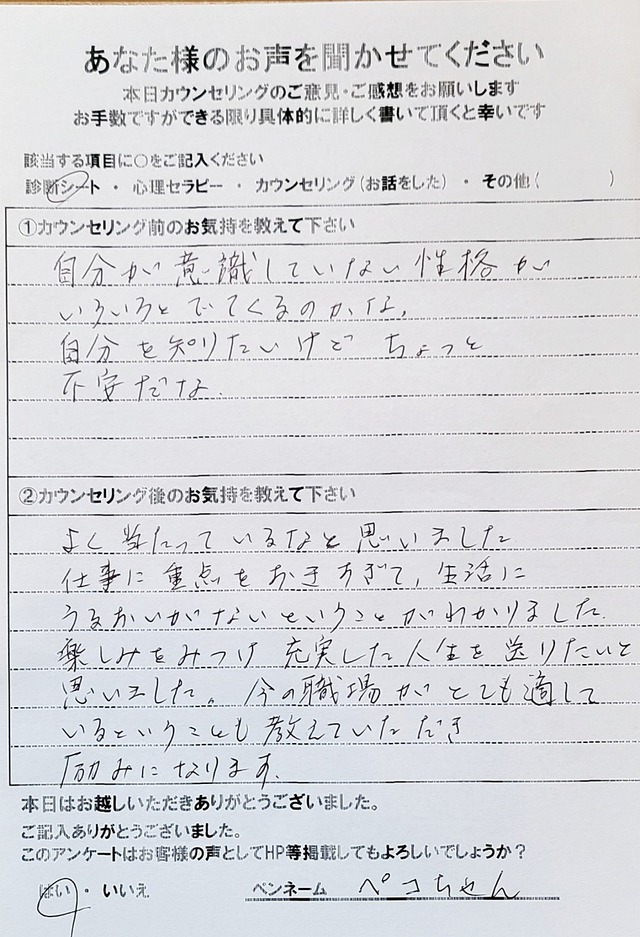 あなた様のお声を聞かせてください
本日カウンセリングのご意見・ご感想をお願いします
お手数ですができる限り具体的に詳しく書いて頂くと幸いです
該当する項目に○をご記入ください
診断シート ・ 心理セラピー ・ カウンセリング(お話をした) ・ その他( )
①カウンセリング前のお気持を教えて下さい
自分が意識していない性格が
いろいろとでてくるのかな。
自分を知りたいけどちょっと
不安だな.
②カウンセリング後のお気持を教えて下さい
よく当たっているなと思いました
仕事に重点をおきすぎて、生活に
うるおいがないということがわかりました.
楽しみをみつけ充実した人生を送りたいと
思いました。今の職場がとても適して
いるということも教えていただき
励みになります.
本日はお越しいただきありがとうございました。
ご記入ありがとうございました。
このアンケートはお客様の声としてHP等掲載してもよろしいでしょうか？
はい ・ いいえ ペンネーム ペコちゃん